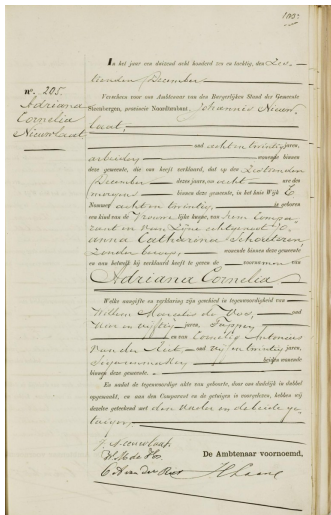 nº. 205.
Adriana
Cornelia
Nieuwlaat
In het jaar een duizend acht honderd zes en tachtig, den Zes-
tienden December
Verscheen voor ons Ambtenaar van den Burgerlijken Stand der Gemeente
Steenbergen, provincie Noordbrabant, Johannis Nieuw-
laat,
oud acht en twintig jaren,
arbeider wonende binnen
deze gemeente, die ons heeft verklaard, dat op den Zestienden
December dezes jaars, om acht ure des
morgens binnen deze gemeente, in het huis Wijk E
Nummer acht en twintig, is geboren
een kind van de Vrouwelijke kunne, van hem Compa-
rant en van zijne echtgenoot Jo-
anna Catharina
zonder beroep, wonende binnen deze gemeente
en ons betwelk hij verklaard heeft te geven de voornamen van
Adriana Cornelia
Welke aangifte en verklaring zijn geschied in tegenwoordigheid van
Willem Marinus de Vos, oud
vier en vijftig jaren, Tapper
en van Cornelis Antonius
van der Riet oud vijf en twintig jaren,
Sigarenmaker beiden wonende
binnen deze gemeente.
En nadat de tegenwoordige akte van geboorte, daar aan dadelijk in dubbel
opgemaakt, en aan den Comparant en de getuigen is voorgelezen, hebben wij
dezelve geteekend met den Vader en de beide ge-
tuigen.
J. Nieuwlaat
W. M. de Vos
C A van der Riet
De Ambtenaar voornoemd,